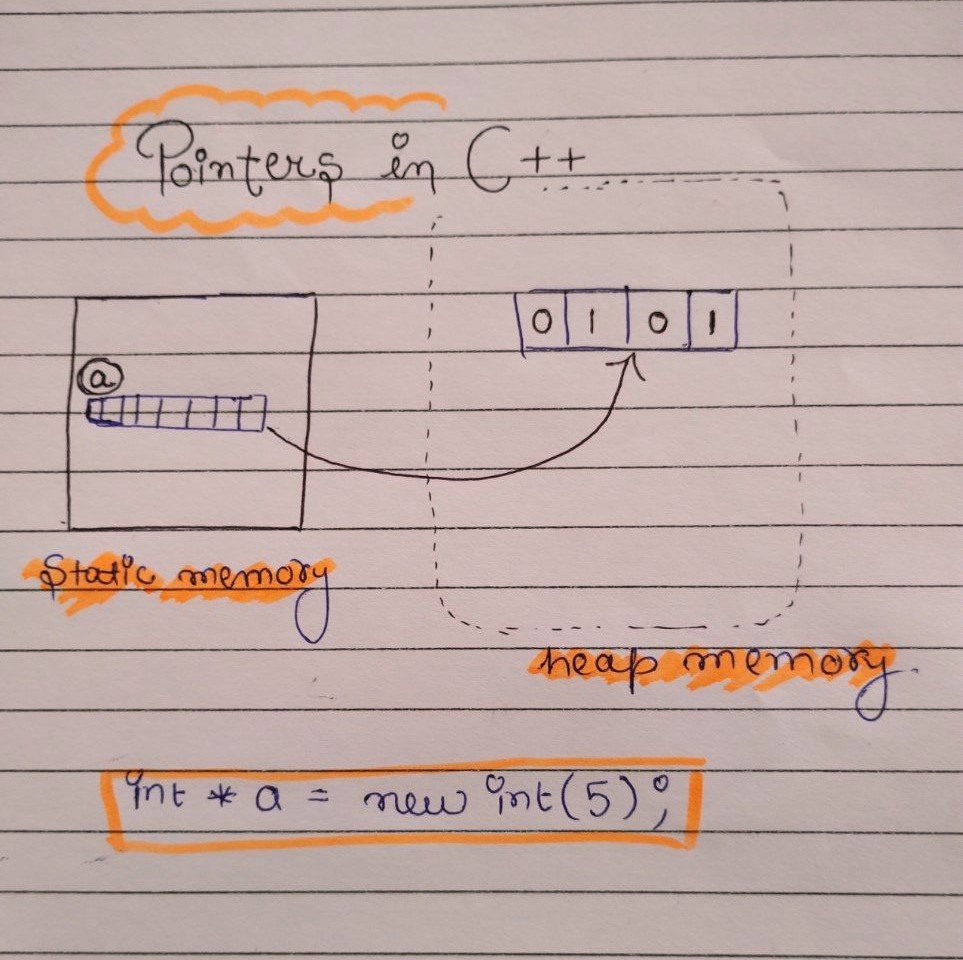 Pointers in C++
0 1 0 1
a
Static memory
heap memory.
int * a = new int(5);